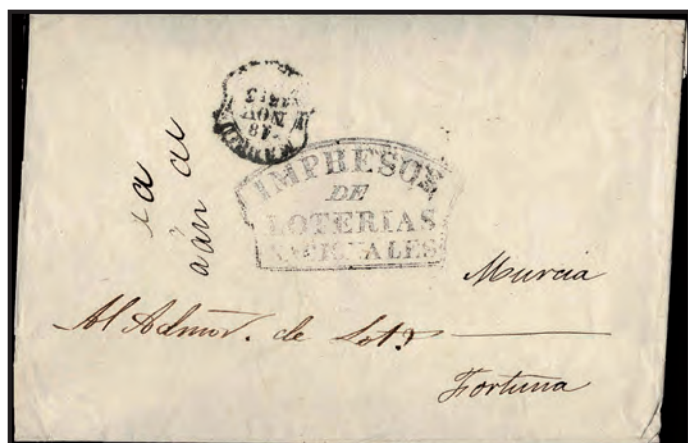 MADRID
18
NOV
IMPRESOS
DE
LOTERIAS
NACIONALES
Murcia
Al Admor. de Lot.s
Fortuna